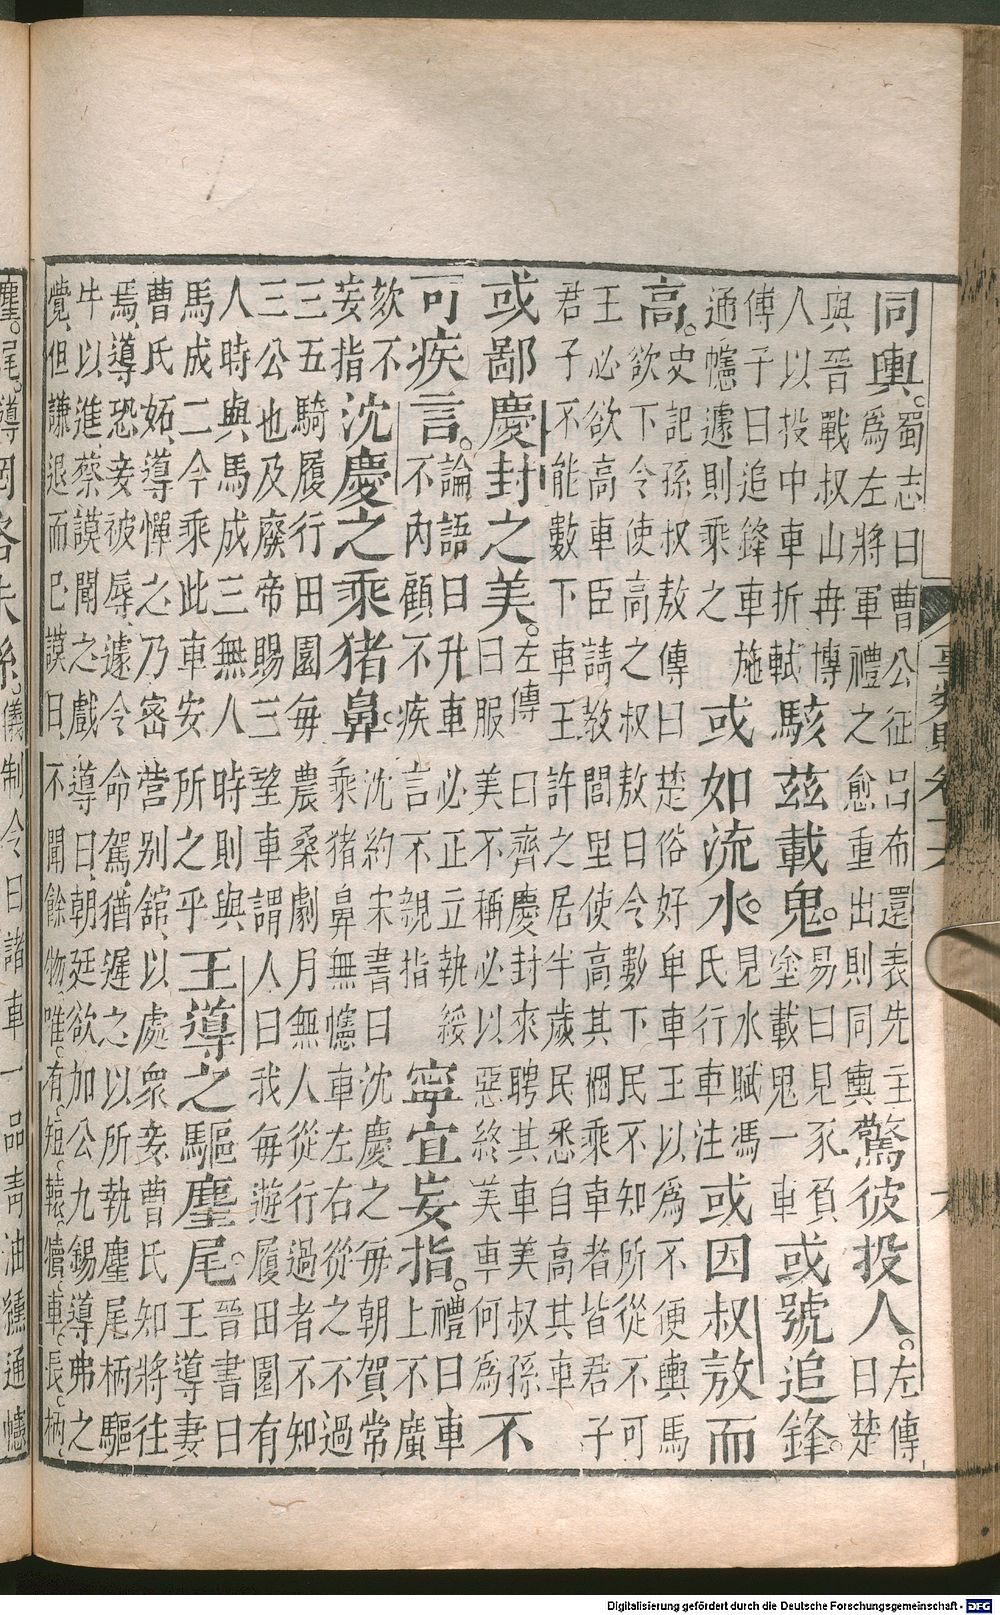 同輿。蜀志曰曹公征呂布還表先主
爲左將軍禮之愈重出則同輿
驚彼投人。左傳
曰楚
與晉戰叔山冉搏
人以投中車折軾
駭茲載鬼。易曰見豕負
塗載鬼一車
或號追鋒。
傅子曰追鋒車施
通幰遽則乘之
或如流水。見水賦馮
氏行車注
或因叔敖而
高。史記孫叔敖傳曰楚俗好卑車王以爲不便輿馬
欲下令使高之叔敖曰令數下民不知所從不可
王必欲高車臣請教閭里使高其梱乘車者皆君子
君子不能數下車王許之居半歲民悉自高其車
或鄙慶封之美。左傳曰齊慶封來聘其車美叔孫
曰服美不稱必以惡終美車何爲
不
可疾言。論語曰升車必正立執綏
不內顧不疾言不親指
寧宜妄指。禮曰車
上不廣
欬不
妄指
沈慶之乘猪鼻。沈約宋書曰沈慶之每朝賀常
乘猪鼻無幰車左右從之不過
三五騎履行田園每農桑劇月無人從行過者不知
三公也及廢帝賜三望車謂人曰我每遊履田園有
人時與馬成三無人時則與
馬成二今乘此車安所之乎
王導之驅麈尾。晉書曰
王導妻
曹氏妬導憚之乃密營别舘以處衆妾曹氏知將往
焉導恐妾被辱遽令命駕猶遲之以所執麈尾柄驅
牛以進蔡謨聞之戲導曰朝廷欲加公九錫導弗之
覺但謙退而已謨曰不聞餘物唯有短轅犢車長柄
儀制令曰諸車一品青油纁通幰
Digitalisierung gefördert durch die Deutsche Forschungsgemeinschaft - DFG